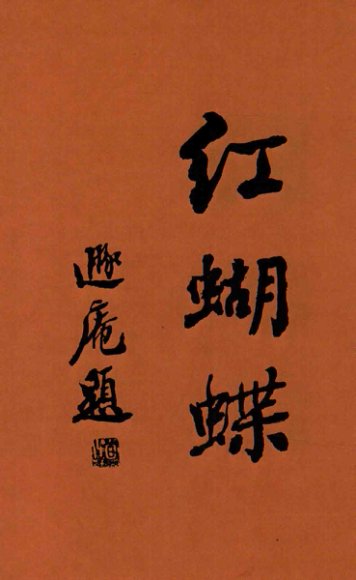 红蝴蝶
遯庵題